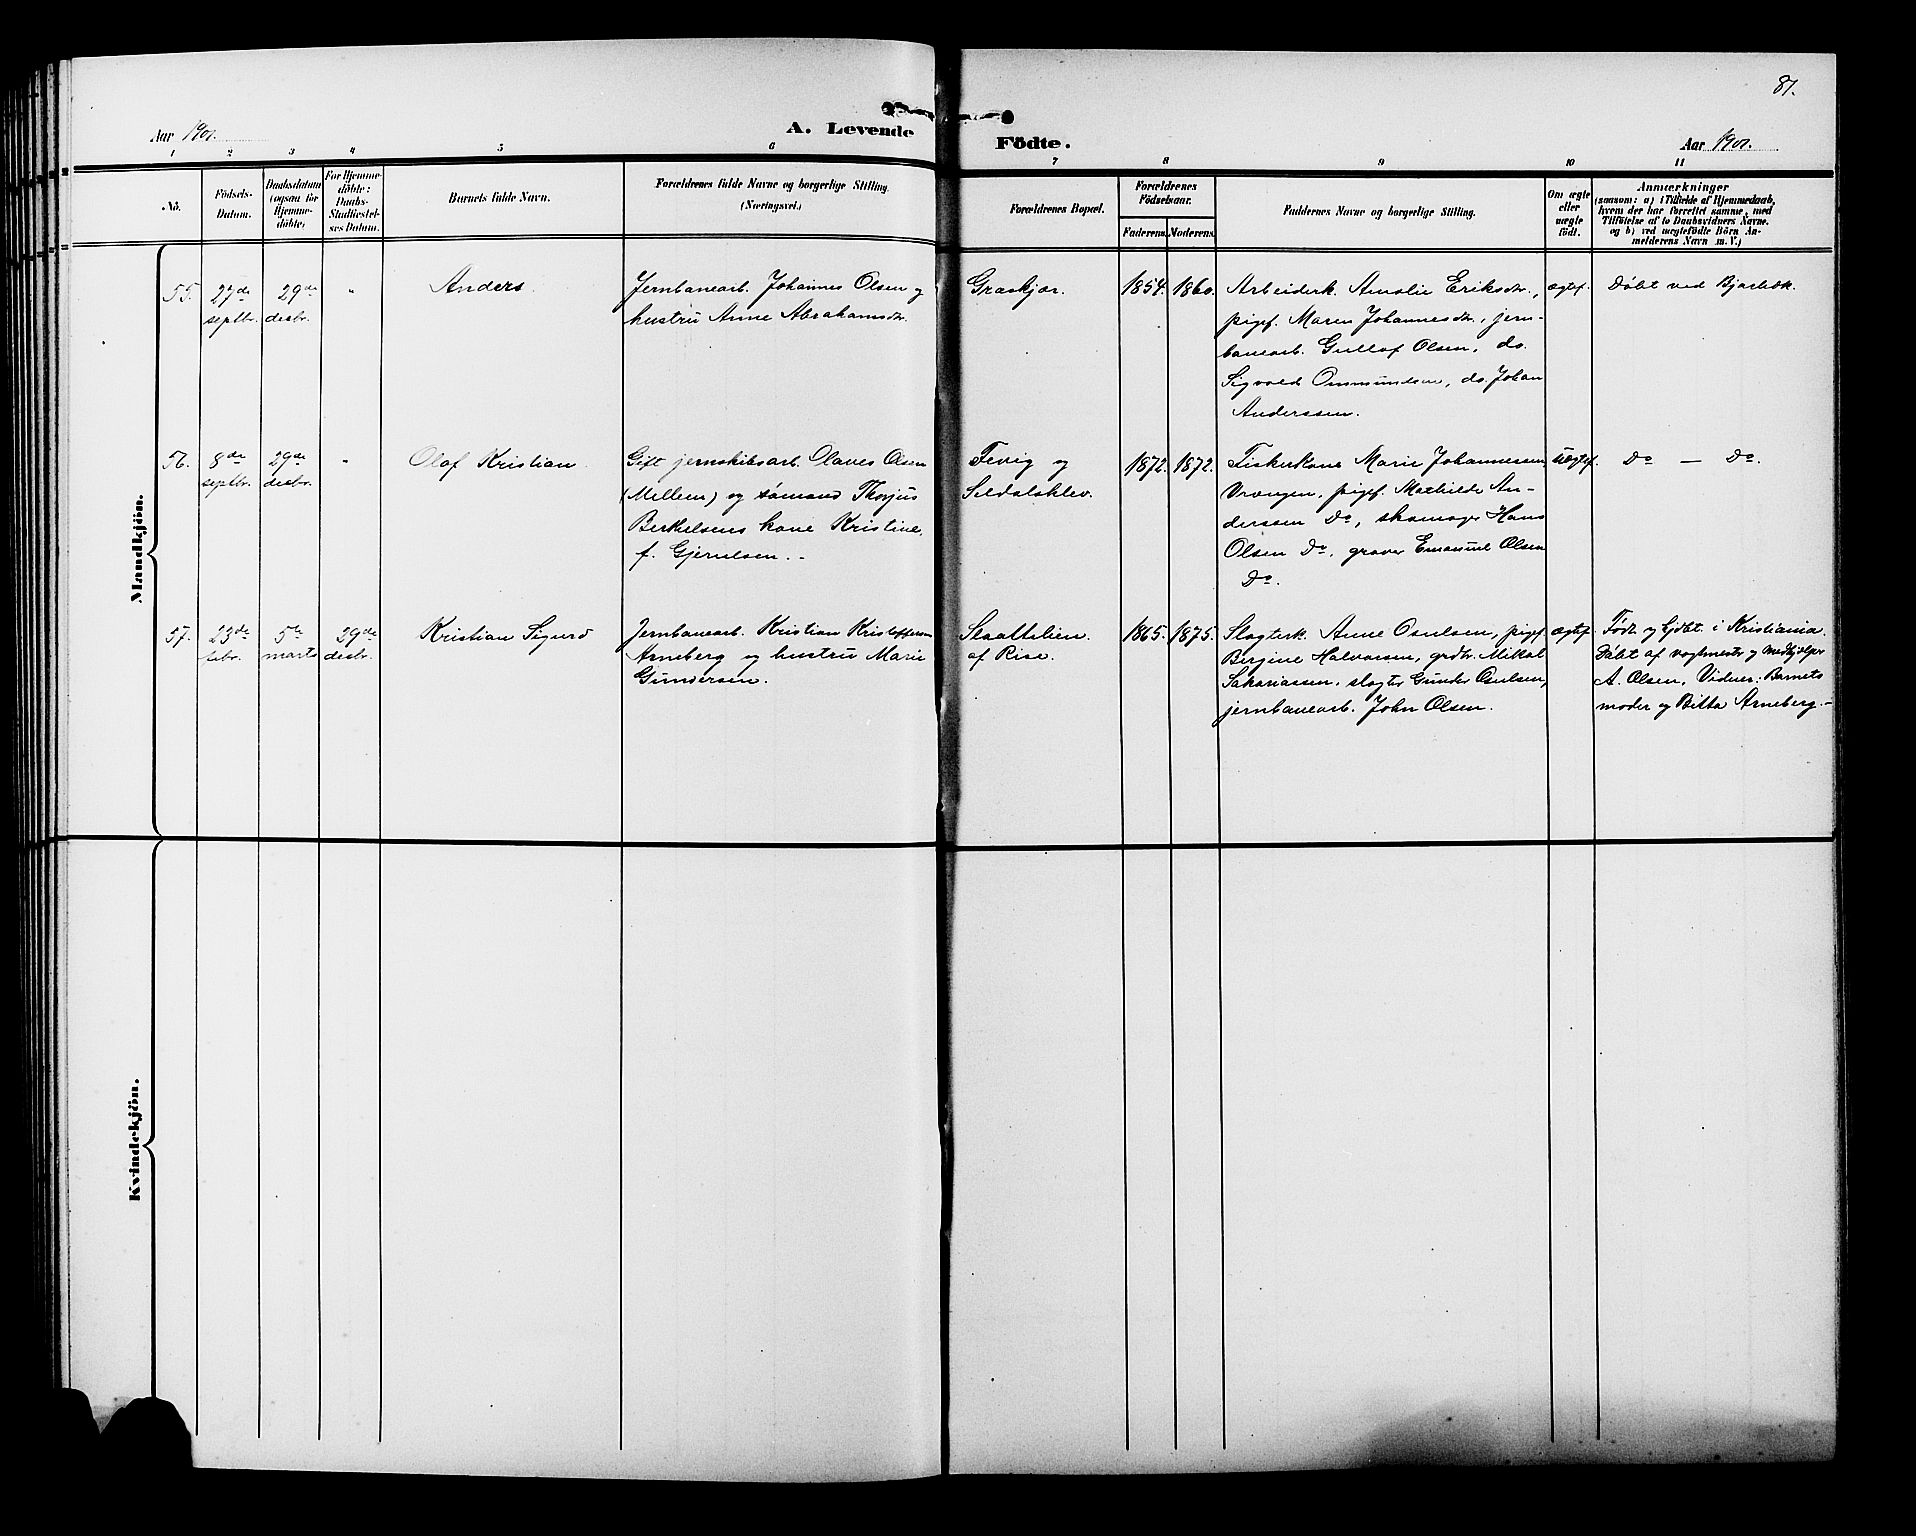 81.
Aar 1901.
A. Levende Födte.
Aar 1901.
1 2 3 4 5 6 7 8 9 10 11
No.
Födsels-
Datum.
Daabsdatum
(ogsaa for
Hjemme-
döbte)
For Hjemme-
döbte:
Daabs-
Stadfæstel-
ses Datum.
Barnets fulde Navn.
Forældrenes fulde Navne og borgerlige Stilling.
(Næringsvei.)
Forældrenes Bopæl.
Forældrenes
Födselsaar.
Faderens. Moderens.
Faddernes Navne og borgerlige Stilling.
Om ægte
eller
uægte
födt.
Anmærkninger
(saasom: a) i Tilfælde af Hjemmedaab,
hvem der har forrettet samme, med
Tilföielse af to Daabsvidners Navne.
og b) ved uægtefödte Börn An-
melderens Navn m. V.)
Mandkjön.
55. 27de
septbr.
29de
desbr.
"
Anders.
Jernbanearb. Johannes Olsen og
hustru Anne Abrahamsdtr.
Graskjær.
1854. 1860.
Arbeiderk. Amalie Eriksdtr.,
pigef. Maren Johannesdtr., jern-
banearb. Gullof Olsen, do.
Sigvald Ommundsen, do. Johan
Anderssen.
ægtef.
Døbt ved Bjorbæk.
56. 8de
septbr.
29de
desbr.
"
Olaf Kristian.
Gift jernskibsarb. Olaves Olsen
(Mellem) og sømand Thorjus
Berthelsens kone Kristine,
f. Gjerulsen. -
Fevig og
Sildalsklev.
1872. 1872.
Fiskerkone Marie Johannessen,
Vrængen, pigef. Mathilde An-
derssen Do, skomager Hans
Olsen Do, graver Emanuel Olsen
Do.
uægtef.
Do — Do.
57. 23de
febr.
5te
marts
29de
desbr.
Kristian Sigurd
Jernbanearb. Kristian Kristoffersen
Arneberg og hustru Marie
Gundersen.
Slaattelien
af Rise.
1865. 1875.
Slagterk. Anne Osulsen, pigef.
Bergine Halvorsen, grdbr. Mikal
Sakariassen, slagter Gunder Osulsen,
jernbanearb. John Olsen.
ægtef.
Født og hjdbt. i Kristiania.
Døbt af vagtmester og medhjælper
A. Olsen, Vidner: Barnets
moder og Bitta Arneberg. -
Kvindekjön.